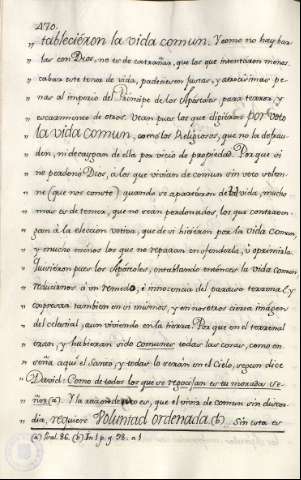 470.
„ tableciéron la vida comun. Y como no hay bur
„ las con Dios, no es de extrañar, que los que intentaron menos
„ cabar este tenor de vida, padeciesen justas, y atrocísimas pe
„ nas al imperio del Príncipe de los Apóstoles, para terror, y
„ escarmiento de otros. Vean pues los que eligiéron por voto
„ la vida comun, como los Religiosos, que no la defrau
„ den, ni decaygan de ella por vicio de propiedad. Porque si
„ no perdonó Dios, a los que vivian de comun sin voto solem
„ ne (que nos conste) quando se apartáron de tal vida, mucho
„ mas es de temer, que no sean perdonados, los que contraven
„ gan á la eleccion votiva, que de sí hiciéron por la vida comun,
„ y mucho ménos los que no reparan en ofenderla, ú oprimirla.
„ Quisiéron pues los Apóstoles, entablando entónces la vida comun,
„ reducirnos á un remedo, é innocencia del parayso terrenal, y
„ expresar tambien en sí mismos, y en nosotros cierta imágen
„ del celestial, aun viviendo en la tierra. Porque en el terrenal
„ exten, y hubieran sido comunes todas las cosas, como en
„ seña aquí el Santo, y todas lo serán en el Cielo, segun dice
„ David: Como de todos los que se regocijan es tu morada Se
„ ñor (a). Y la razon de esto es, que el vivir de comun sin discor
„ dia, requiere Voluntad ordenada. (b). Sin esta es
(a) Psal. 86. (b) In 1 p. q. 98. a. 1